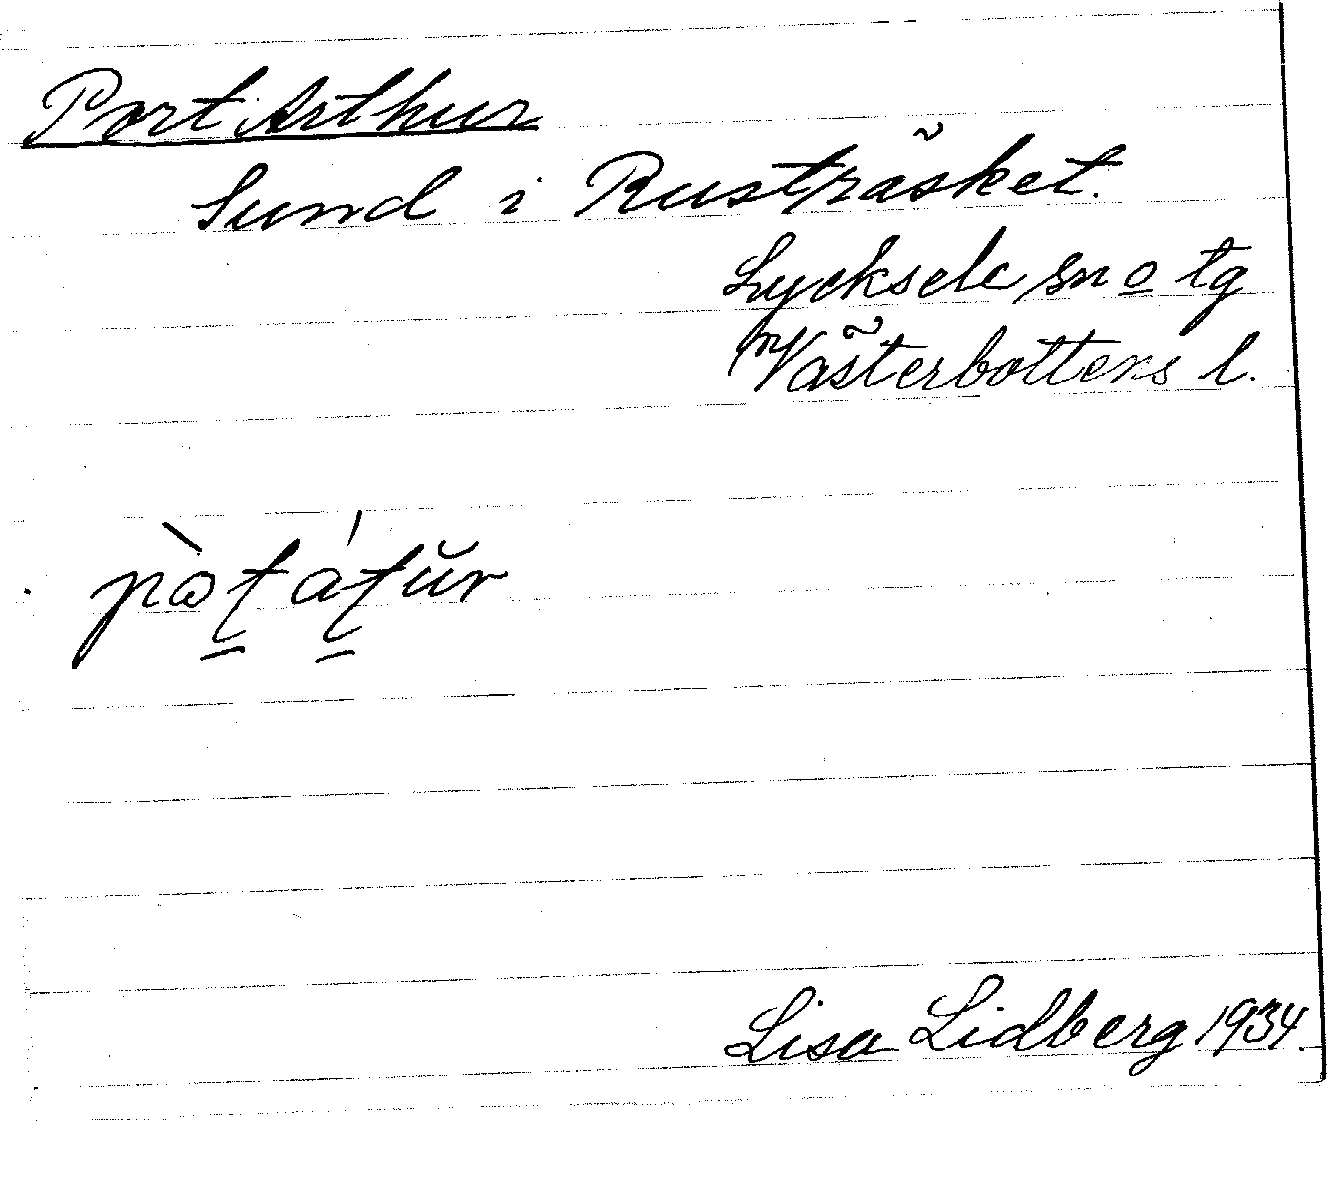 Port Arthur
Sund i Rusträsket.
Lycksele sn o tg
Västerbottens l.
pòt̲át̲ŭr
Lisa Lidberg 1934.